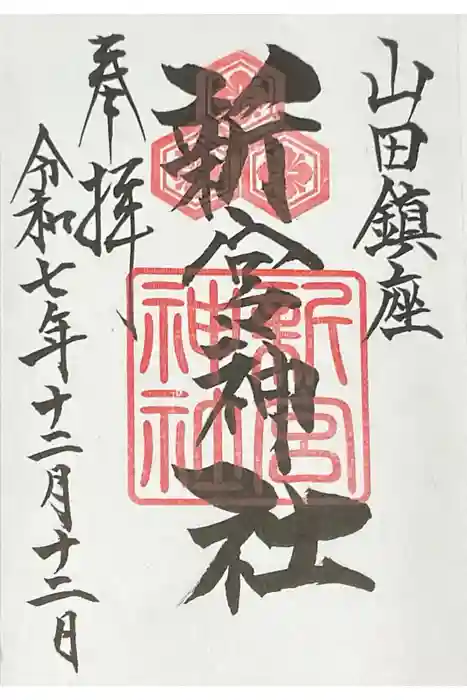 山田鎮座
新宮神社
奉拝
令和七年十二月十二日
新宮
神社